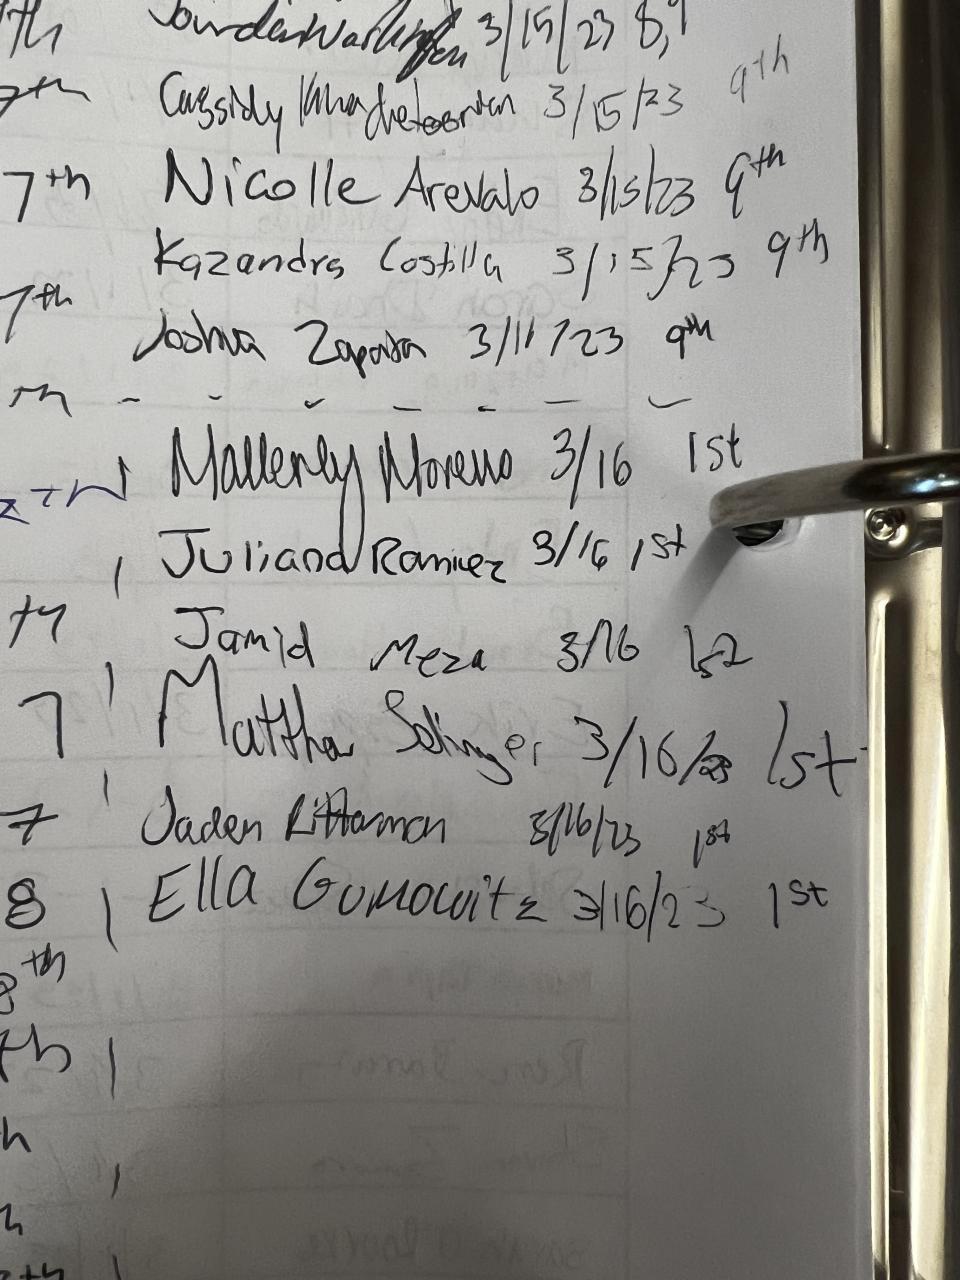 7th 3/15/23 8,9
7th Cassidy 3/15/23 9th
7th Nicolle Arevalo 3/15/23 9th
Kazandra Costilla 3/15/23 9th
7th Joshua Zapata 3/11/23 9th
th
7th Mallerly Moreno 3/16 1st
Juliana Ramirez 3/16 1st
th Jamid Meza 3/16 1st
7 Matthew Salinger 3/16/23 1st
7 Jaden Littaman 3/16/23 1st
8 Ella Gumowitz 3/16/23 1st
8th
th
h
h
th